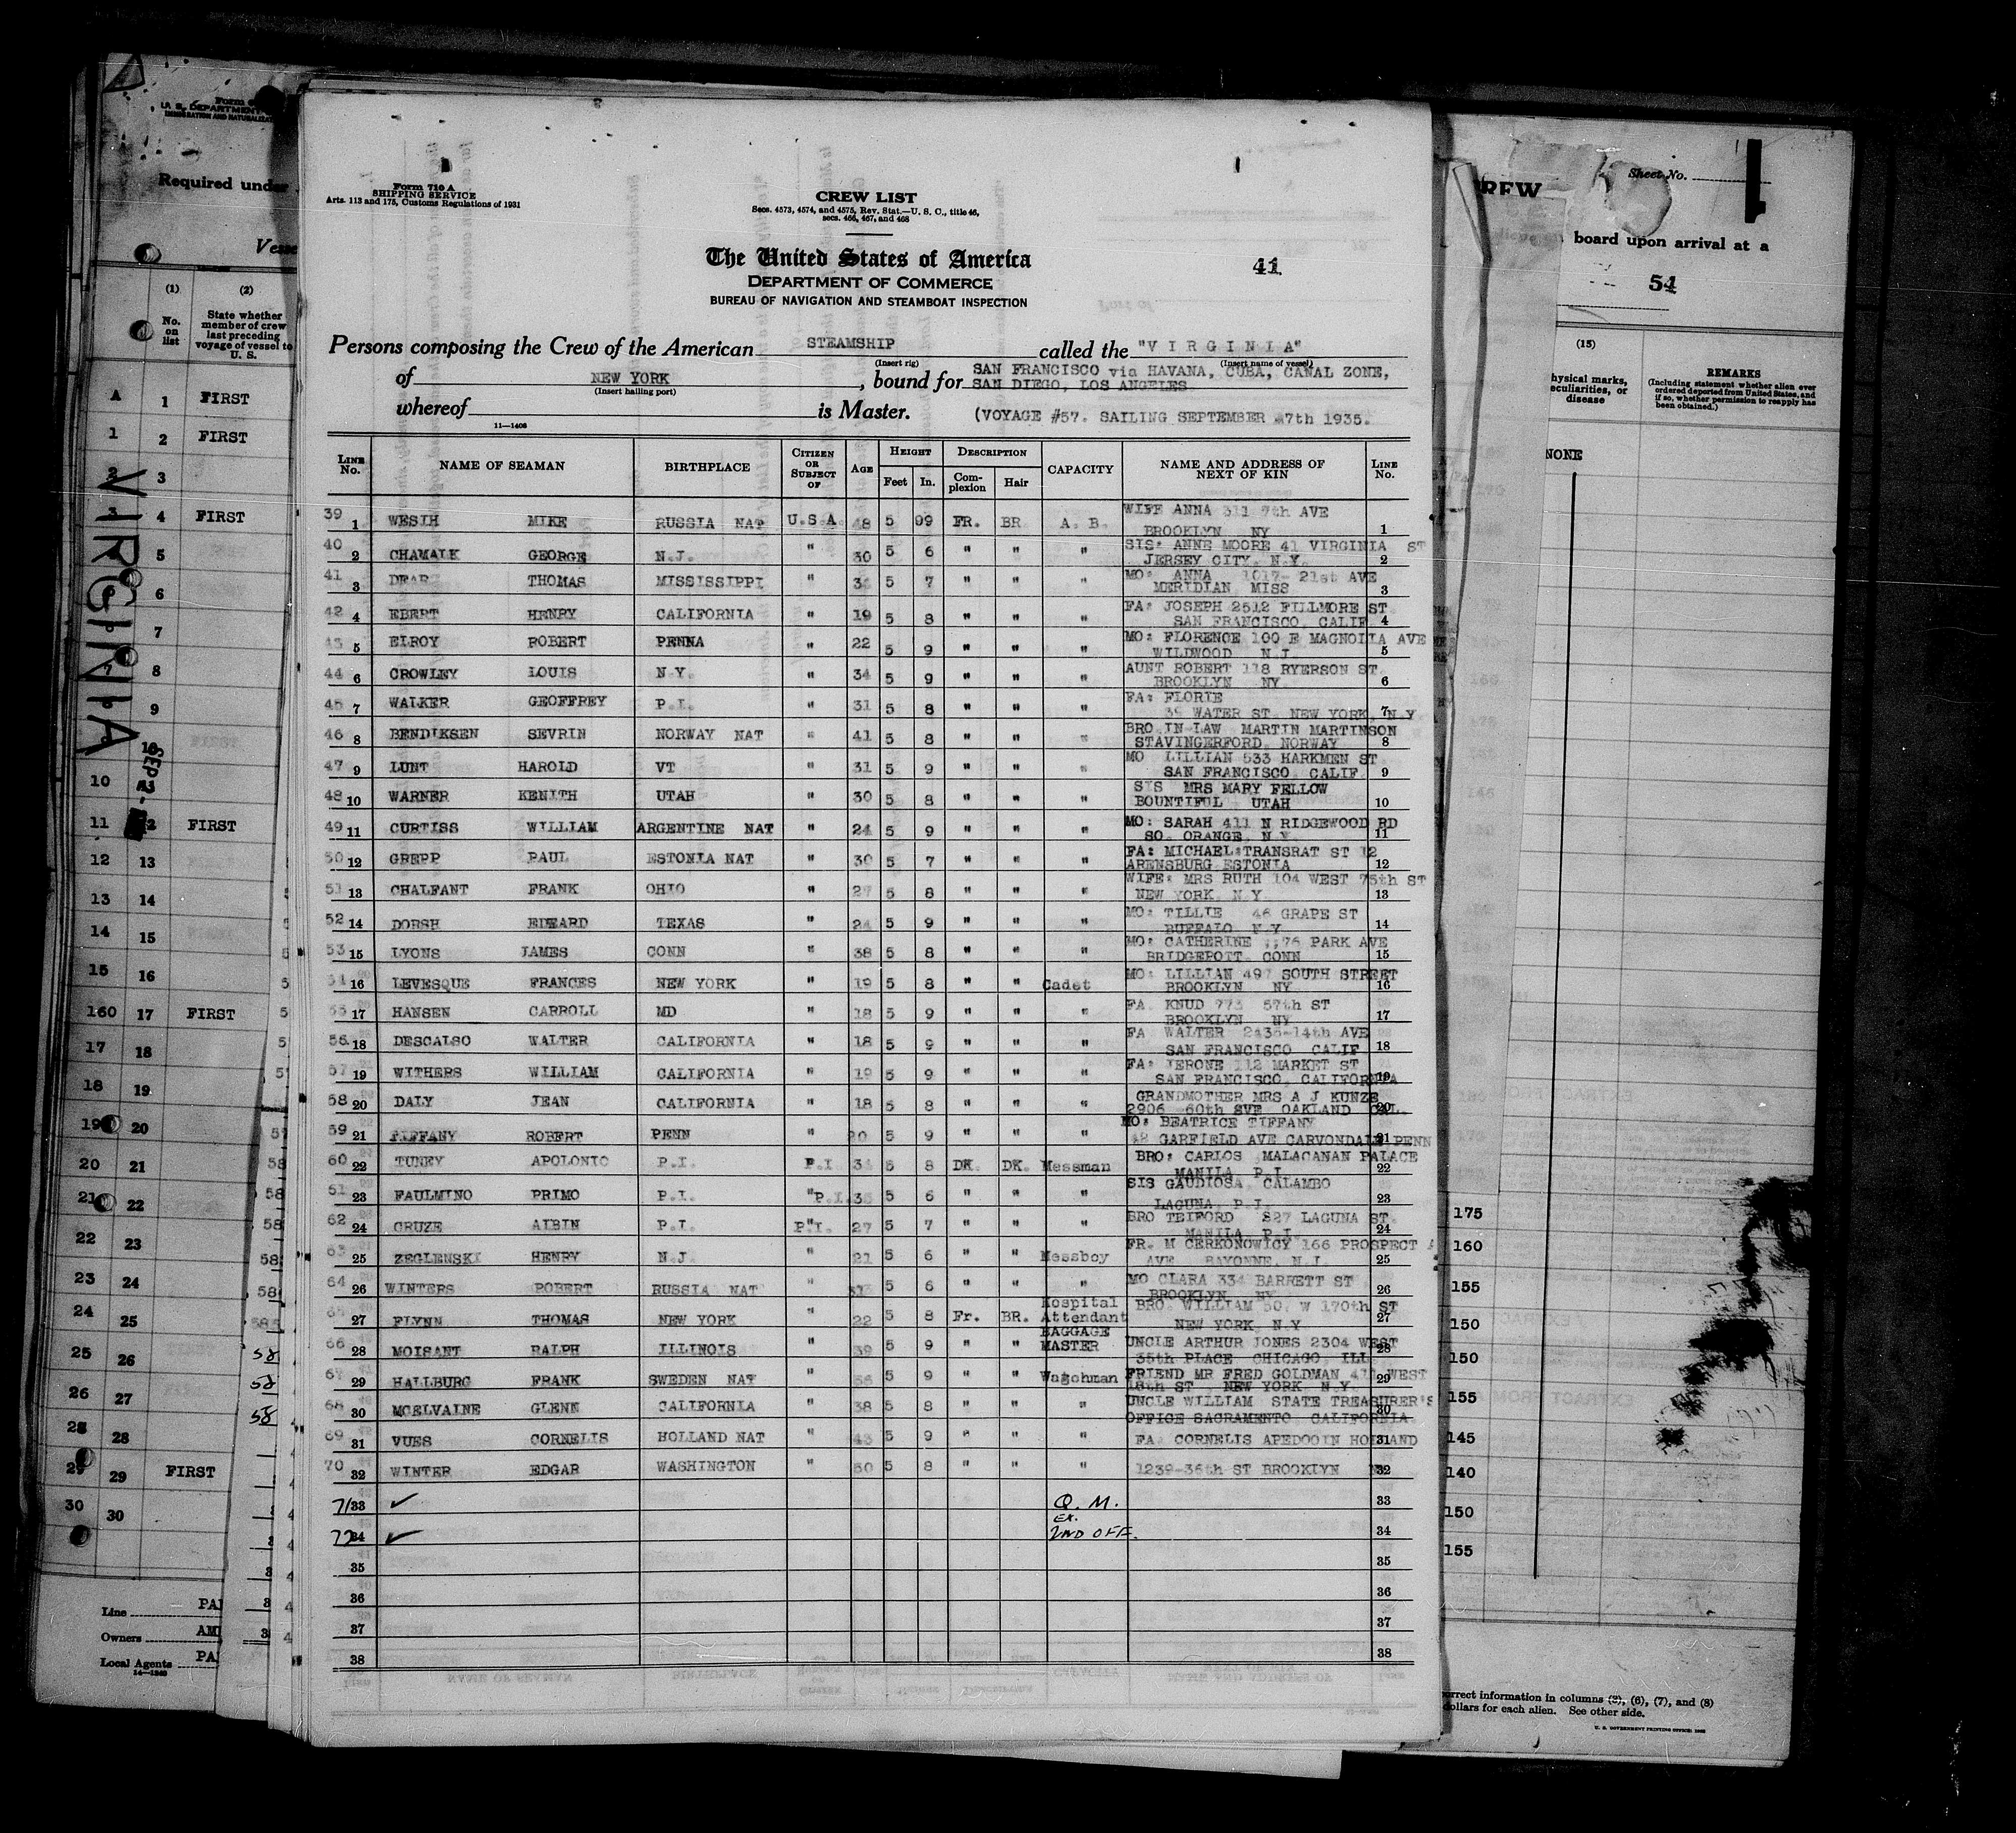 Form 710 A
SHIPPING SERVICE
Arts. 113 and 175, Customs Regulations of 1931
CREW LIST
Secs. 4573, 4574, and 4575, Rev. Stat.—U. S. C., title 46,
secs. 466, 467, and 468
The United States of America
DEPARTMENT OF COMMERCE
BUREAU OF NAVIGATION AND STEAMBOAT INSPECTION
41
Persons composing the Crew of the American STEAMSHIP called the "V I R G I N I A"
(Insert rig) (Insert name of vessel)
of NEW YORK, bound for SAN FRANCISCO via HAVANA, CUBA, CANAL ZONE,
(Insert hailing port) SAN DIEGO, LOS ANGELES
whereof is Master. (VOYAGE #57. SAILING SEPTEMBER 7th 1935.
11—1406
LINE No. NAME OF SEAMAN BIRTHPLACE CITIZEN OR SUBJECT OF AGE HEIGHT Feet In. DESCRIPTION Complexion Hair CAPACITY NAME AND ADDRESS OF NEXT OF KIN LINE No.
39 1 WESIH MIKE RUSSIA NAT U.S.A. 48 5 99 FR. BR A. B. WIFE ANNA 311 7th AVE BROOKLYN NY 1
40 2 CHAMALK GEORGE N.J. " 30 5 6 " " " SIS: ANNE MOORE 41 VIRGINIA ST JERSEY CITY, N.Y. 2
41 3 DEAR THOMAS MISSISSIPPI " 5 7 " " " MO: ANNA 1017- 21st AVE MERIDIAN MISS 3
42 4 EBERT HENRY CALIFORNIA " 19 5 8 " " " FA: JOSEPH 2512 FILLMORE ST SAN FRANCISCO, CALIF 4
43 5 ELROY ROBERT PENNA " 22 5 9 " " " MO: FLORENCE 100 E MAGNOLIA AVE WILDWOOD N.J. 5
44 6 CROWLEY LOUIS N.Y. " 34 5 9 " " " AUNT ROBERT 118 RYERSON ST. BROOKLYN NY. 6
45 7 WALKER GEOFFREY P.I. " 31 5 8 " " " FA: FLORIE 39 WATER ST. NEW YORK, N.Y 7
46 8 BENDIKSEN SEVRIN NORWAY NAT " 41 5 8 " " " BRO IN LAW MARTIN MARTINSON STAVINGERFORD, NORWAY 8
47 9 LUNT HAROLD VT " 31 5 9 " " " MO LILLIAN 533 HARKMEN ST SAN FRANCISCO CALIF 9
48 10 WARNER KENITH UTAH " 30 5 8 " " " SIS MRS MARY FELLOW BOUNTIFUL UTAH 10
49 11 CURTISS WILLIAM ARGENTINE NAT " 24 5 9 " " " MO: SARAH 411 N RIDGEWOOD RD SO. ORANGE, N.Y. 11
50 12 GREPP PAUL ESTONIA NAT " 30 5 7 " " " FA: MICHAEL:TRANSRAT ST 12 ARENSBURG ESTONIA 12
51 13 CHALFANT FRANK OHIO " 27 5 8 " " " WIFE: MRS RUTH 104 WEST 75th ST NEW YORK, N.Y. 13
52 14 DORSH EDEARD TEXAS " 24 5 9 " " " MO: TILLIE 46 GRAPE ST BUFFALO N.Y 14
53 15 LYONS JAMES CONN " 38 5 8 " " " MO: CATHERINE PARK AVE BRIDGEPOTT, CONN 15
54 16 LEVESQUE FRANCES NEW YORK " 19 5 8 " " Cadet MO: LILLIAN 497 SOUTH STREET BROOKLYN NY 16
55 17 HANSEN CARROLL MD " 18 5 9 " " " FA KNUD 773 57th ST BROOKLYN NY 17
56 18 DESCALSO WALTER CALIFORNIA " 18 5 9 " " " FA WALTER 2435-14th AVE SAN FRANCISCO CALIF 18
57 19 WITHERS WILLIAM CALIFORNIA " 19 5 9 " " " FA: JERONE 112 MARKET ST SAN FRANCISCO, CALIFORNIA 19
58 20 DALY JEAN CALIFORNIA " 18 5 8 " " " GRANDMOTHER MRS A J KUNZE 2906 60th SVE OAKLAND CAL. 20
59 21 TIFFANY ROBERT PENN " 20 5 9 " " " MO: BEATRICE TIFFANY GARFIELD AVE CARVONDALE PENN 21
60 22 TUNEY APOLONIO P.I. P.I 5 8 DK. DK. Messman BRO: CARLOS MALACANAN PALACE MANILA P.I. 22
61 23 FAULMINO PRIMO P.I. "P.I. 5 6 " " " SIS GAUDIOSA, CALAMBO LAGUNA, P.I. 23
62 24 CRUZE ALBIN P.I. P"I. 27 5 7 " " " BRO TEIFORD 827 LAGUNA ST. MANILA P.I. 24
63 25 ZEGLENSKI HENRY N.J. " 21 5 6 " " Messboy FR. M CERKONOWICY 166 PROSPECT AVE BAYONNE, N.J. 25
64 26 WINTERS ROBERT RUSSIA NAT " 5 6 " " " MO CLARA 334 BARRETT ST BROOKLYN NY 26
65 27 FLYNN THOMAS NEW YORK " 22 5 8 Fr. BR. Hospital Attendant BRO. WILLIAM W 170th ST NEW YORK, N.Y 27
66 28 MOISANT RALPH ILLINOIS " 39 5 9 " " BAGGAGE MASTER UNCLE ARTHUR JONES 2304 WEST 35th PLACE CHICAGO ILL 28
67 29 HALLBURG FRANK SWEDEN NAT " 5 9 " " Wagchman FRIEND MR FRED GOLDMAN WEST 18th ST , NEW YORK N.Y. 29
68 30 MCELVAINE GLENN CALIFORNIA " 38 5 8 " " " UNCLE WILLIAM STATE TREASURER'S OFFICE SACRAMENTO CALIFORNIA. 30
69 31 VUES CORNELIS HOLLAND NAT " 43 5 9 " " " FA: CORNELIS APEDOOIN HOLLAND 31
70 32 WINTER EDGAR WASHINGTON " 50 5 8 " " " 1239-36th ST BROOKLYN 32
71 33 ✓ Q. M. 33
72 34 ✓ EX. 2ND OFF. 34
35 35
36 36
37 37
38 38
Required under
Vesse
(1) (2)
No. on list
State whether member of crew last preceding voyage of vessel to U. S.
A 1 FIRST
1 2 FIRST
2 3
3 4 FIRST
5
6
7
8
9
10
11 FIRST
12 13
13 14
14 15
15 16
160 17 FIRST
17 18
18 19
19 20
20 21
21 22
22 23
23 24
24 25
25 26
26 27
28
29 FIRST
30 30
VIRGINIA
Line PA
Owners AM
Local Agents PA
CREW
Sheet No.
1
board upon arrival at a
54
(15)
hysical marks, eculiarities, or disease
REMARKS
(Including statement whether alien ever ordered deported from United States, and if so, whether permission to reapply has been obtained.)
NONE
175
160
155
150
150
155
145
140
150
155
orrect information in columns (2), (6), (7), and (8)
dollars for each alien. See other side.
U. S. GOVERNMENT PRINTING OFFICE